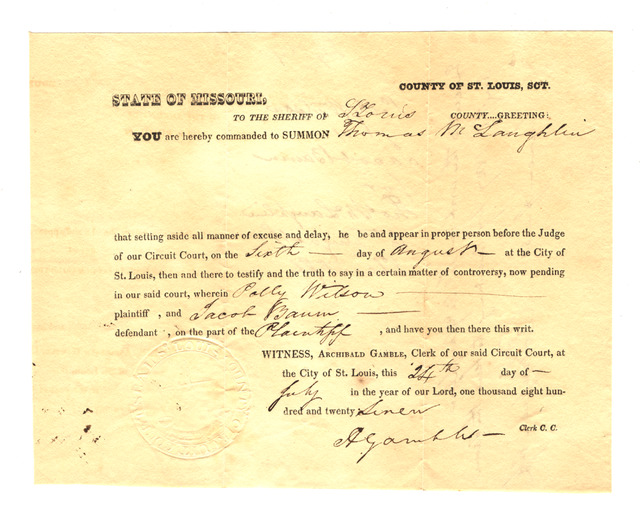 COUNTY OF ST. LOUIS, SCT.
STATE OF MISSOURI,
TO THE SHERIFF OF St Louis COUNTY....GREETING:
YOU are hereby commanded to SUMMON Thomas McLaughlin
that setting aside all manner of excuse and delay, he be and appear in proper person before the Judge
of our Circuit Court, on the Sixth — day of August — at the City of
St. Louis, then and there to testify and the truth to say in a certain matter of controversy, now pending
in our said court, wherein Polly Wilson —
plaintiff , and Jacob Baum —
defendant , on the part of the Plaintiff , and have you then there this writ.
WITNESS, ARCHIBALD GAMBLE, Clerk of our said Circuit Court, at
the City of St. Louis, this 24th day of —
July in the year of our Lord, one thousand eight hun-
dred and twenty Seven
A Gamble — Clerk C. C.